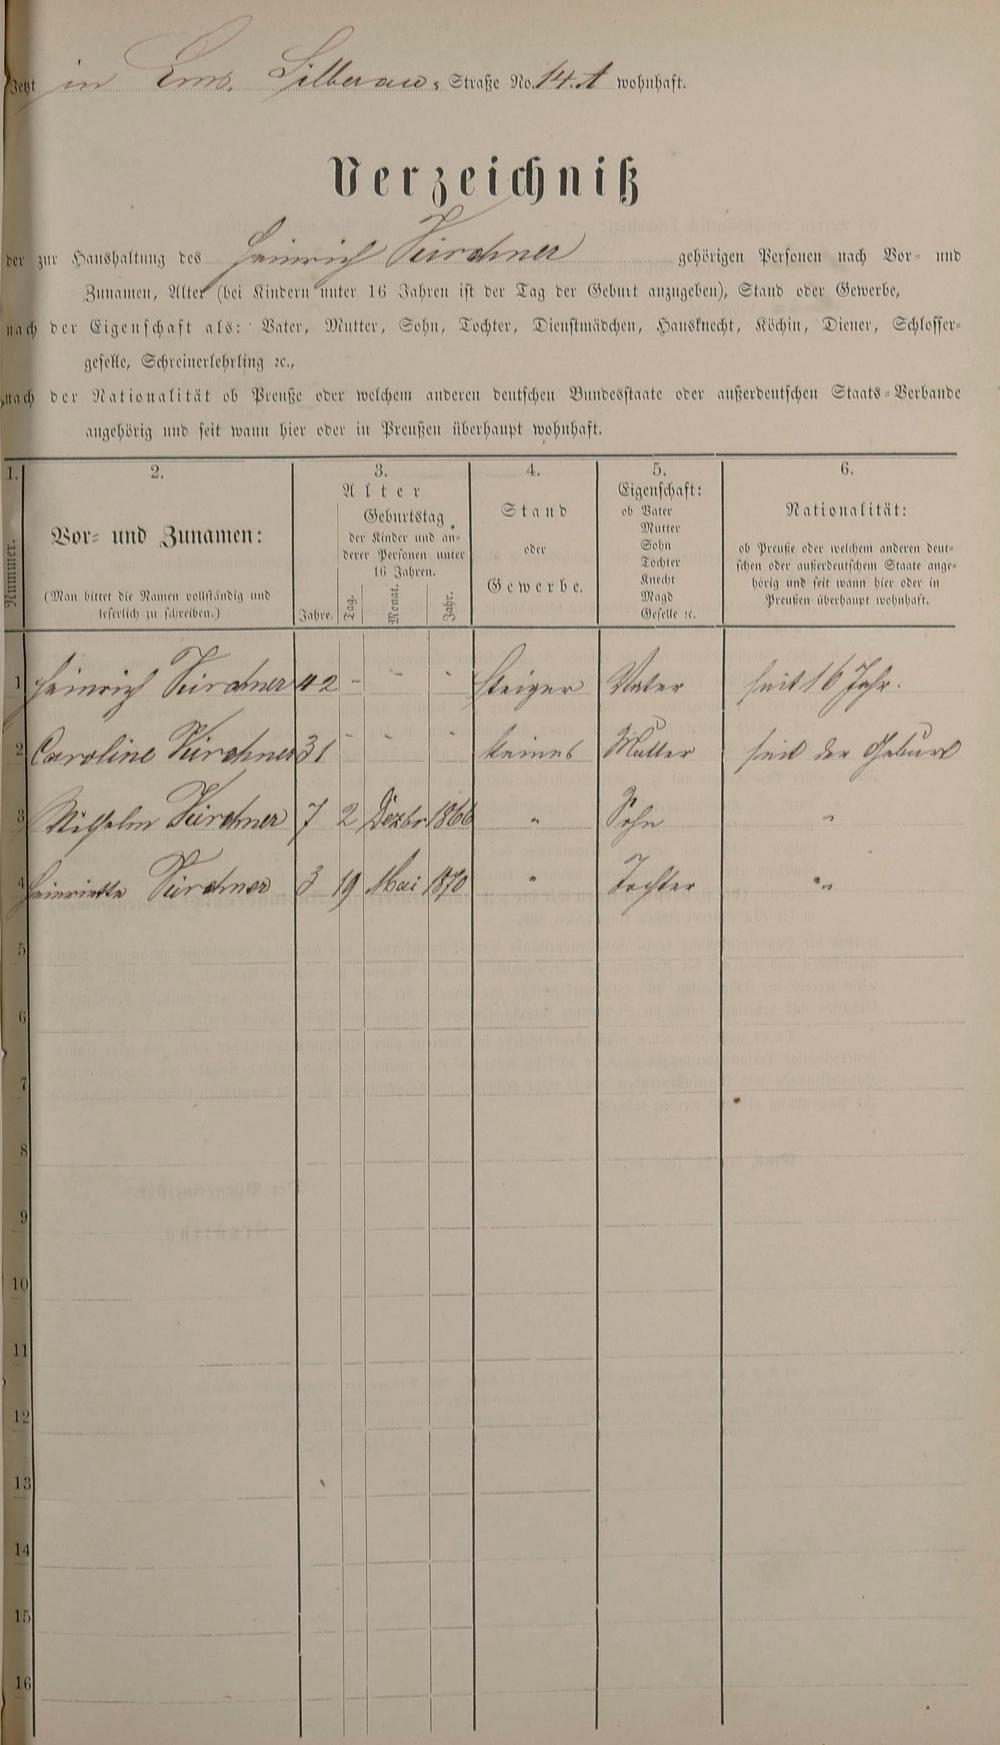 Jetzt in Ems, Silberau- Straße No. 14. A wohnhaft.
Verzeichniß
der zur Haushaltung des Heinrich Kirchner gehörigen Personen nach Vor- und
Zunamen, Alter (bei Kindern unter 16 Jahren ist der Tag der Geburt anzugeben), Stand oder Gewerbe,
nach der Eigenschaft als: Vater, Mutter, Sohn, Tochter, Dienstmädchen, Hausknecht, Köchin, Diener, Schlosser-
geselle, Schreinerlehrling ꝛc.,
nach der Nationalität ob Preuße oder welchem anderen deutschen Bundesstaate oder außerdeutschen Staats-Verbande
angehörig und seit wann hier oder in Preußen überhaupt wohnhaft.
1. 2. 3. 4. 5. 6.
Nummer.
Vor- und Zunamen:
(Man bittet die Namen vollständig und
leserlich zu schreiben.)
Alter
Jahre.
Geburtstag
der Kinder und an-
derer Personen unter
16 Jahren.
Tag. Monat. Jahr.
Stand
oder
Gewerbe.
Eigenschaft:
ob Vater
Mutter
Sohn
Tochter
Knecht
Magd
Geselle ꝛc.
Nationalität:
ob Preuße oder welchem anderen deut-
schen oder außerdeutschem Staate ange-
hörig und seit wann hier oder in
Preußen überhaupt wohnhaft.
1 Heinrich Kirchner 42 - - - Steiger Vater seit 16 Jahr.
2 Caroline Kirchner 31 - - - keines Mutter seit der Geburt
3 Wilhelm Kirchner 7 2 Dezbr 1866 " Sohn "
4 Heinriette Kirchner 3 19 Mai 1870 " Tochter "
5
6
7
8
9
10
11
12
13
14
15
16